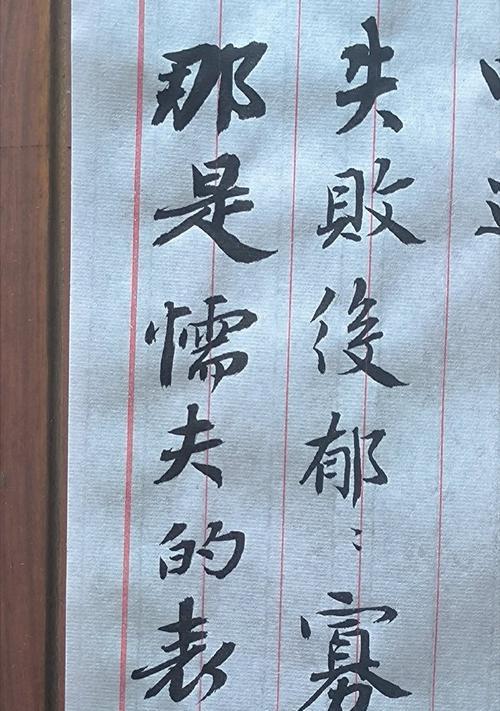 失敗後郁〻寡
那是懦夫的表